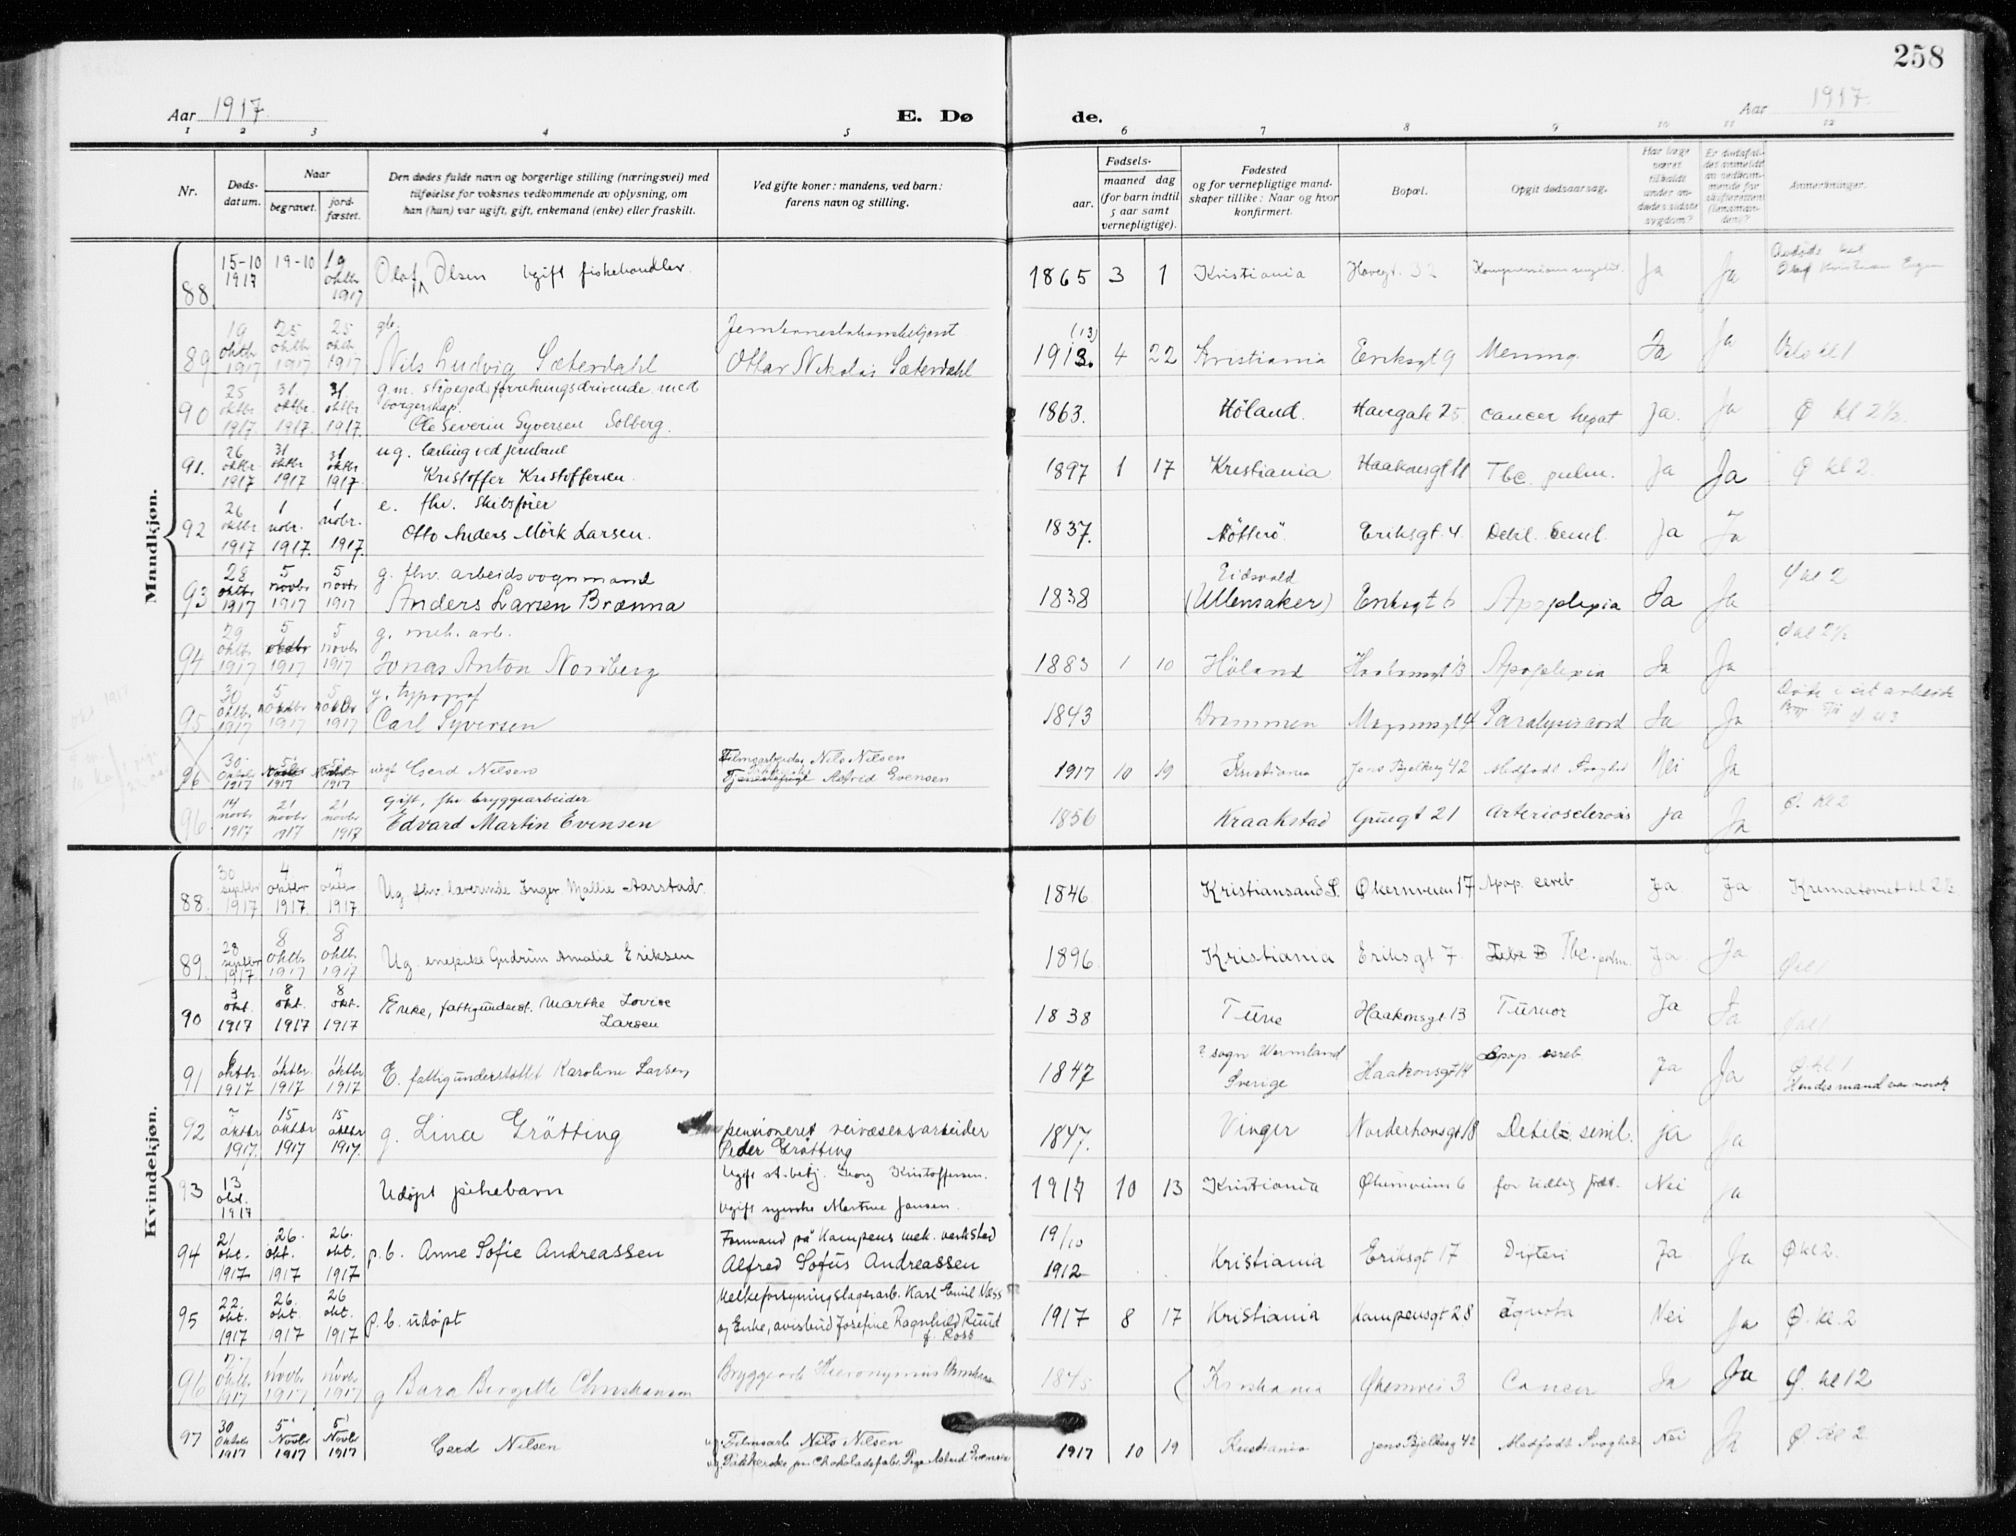 258
Aar 1917. E. Dø de. Aar 1917.
1 2 3 4 5 6 7 8 9 10 11 12
Nr.
Døds-
datum.
Naar
begravet.
jord-
fæstet.
Den dødes fulde navn og borgerlige stilling (næringsvei) med
tilføielse for voksnes vedkommende av oplysning, om
han (hun) var ugift, gift, enkemand (enke) eller fraskilt.
Ved gifte koner: mandens, ved barn:
farens navn og stilling.
Fødsels-
aar.
maaned dag
(for barn indtil
5 aar samt
vernepligtige).
Fødested
og for vernepligtige mand-
skaper tillike: Naar og hvor
konfirmert.
Bopæl.
Opgit dødsaarsag.
Har læge
været
tilkaldt
under an-
dødes sidste
sygdom?
Er dødsfal-
det anmeldt
av vedkom-
mende for
skifteretten
(lensman-
den)?
Anmerkninger.
Mandkjøn.
88. 15-10 1917 19-10 19 oktbr 1917 Olaf Olsen ugift fiskehandler. 1865 3 1 Kristiania 32 Ja Ja Olaf Kristian
89 19 oktbr 1917 25 oktbr 1917 25 oktbr 1917 Nils Ludvig Sæterdahl Jernbanestationsbetjent Ottar Nikolai Sæterdahl (13) 1913. 4 22 Kristiania Eriksgt 9 Mening. Ja Ja kl 1
90 25 oktbr 1917 31. oktbr. 1917. 31. oktbr. 1917. g.m. skipsgodsforretningsdrivende med borgerskap. Ole Severin Syversen Solberg. 1863. Høland. Haugate 25. cancer hepat Ja. Ja Ø kl 2½.
91. 26 oktbr. 1917 31 oktbr 1917 31 oktbr 1917. ug. lærling ved jernbane Kristoffer Kristoffersen. 1897 1 17 Kristiania Haakonsgt 11 Tbc. pulm. Ja Ja Ø kl 2.
92 26 oktbr 1917 1 nobr. 1917. 1 nobr. 1917. e. fhv. skibsfører Otto Anders Mörk Larsen. 1837. Nötterö. Eriksgt. 4. Debil. senil. Ja Ja
93 28 oktbr 1917 5 novbr 1917 5 novbr 1917 g. fhv. arbeidsvognmand Anders Larsen Brænna 1838 Eidsvold (Ullensaker) Eriksgt 6 Apoplexia Ja Ja Ø kl 2
94 29 oktbr 1917 5 oktbr 1917 5 novbr 1917 g. mek. arb. Jonas Anton Nordberg 1883 1 10 Höland Haakonsgt 13 Apoplexia Ja Ja Ø kl 2½
95 30 oktbr 1917 5 1917 5 1917 g. typograf Carl Syversen 1843 Drammen Magnusgt 4 Paralysis cord Ja Ja Døde i sit arbeide kl 3
96 30. Oktbr 1917 5. Novbr 1917 5. Novbr 1917 Gerd Nilsen Filmsarbeider Nils Nilsen Tjenestepige Astrid Evensen 1917 10 19 Kristiania Jens Bjelkesg 42 Medfødt Svaghet Nei Ja
96. 14 novbr 1917 21 novbr 1917 21 novbr 1917 gift, fhv bryggearbeider Edvard Martin Evensen 1856 Kraakstad Gruegt 21 Arteriosclerosis Ja Ja Ø. kl 2
Kvindekjøn.
88. 30 septbr 1917 4 oktbr 1917. 4 oktbr 1917. Ug. fhv. lærerinde Inger Mallie Aarstad. 1846 Kristiansand S. Økernveien 17 Apop. cereb Ja Ja Krematoriet kl 2½
89. 28 septbr 1917 8 oktbr. 1917 8 oktbr. 1917 Ug. Gudrun Amalie Eriksen 1896 Kristiania Eriksgt 7 Tbc. pulm. Ja Ja Ø kl 1
90 3 okt. 1917 8 okt. 1917 8 okt. 1917 Enke, fattigunderst. Marthe Lovise Larsen 1838 Tune Haakonsgt. 13 Tumor Ja Ja Ø kl 1
91 6 oktbr. 1917 11 oktbr. 1917 11 oktbr 1917 E. fattigunderstøttet Karoline Larsen 1847 ? sogn Wermland Sverige Haakonsgt 14 Apop. cereb. Ja Ja Ø kl 1 Hendes mand var norsk
92 7 oktbr 1917. 15 oktbr 1917 15 oktbr 1917. g. Lina Grötting pensioneret veivæsensarbeider Peder Grötting 1847. Vinger Norderhovsgt 18 Debilit. senil. ja Ja
93 13 okt. 1917 Udöpt pikebarn Ugift st.betj. Georg Kristoffersen. Ugift syerske Martine Jansen. 1917 10 13 Kristiania Økernveien 6 for tidlig født. Nei Ja
94 21 okt. 1917 26. okt. 1917 26. okt. 1917 p.b. Anne Sofie Andreassen Formand på Kampens mek. verksted Alfred Sofus Andreassen 19/10 1912 Kristiania Eriksgt 17 Difteri Ja. Ja Ø kl 2.
95 22. okt. 1917 26. okt. 1917 26 okt. 1917 p.b. udöpt Melkeforsyningslagerarb. Karl Emil Næss og Enke, avisbud Josefine Ragnhild Ruud f. Ross 1917 8 17 Kristiania Kampensgt 28 Ignota Nei Ja Ø. kl. 2
96 oktbr. 1917 1 novbr 1917 1 novbr 1917 g Bara Birgitte Christiansen Bryggearb Hieronymus 1845 Kristiania Økernvei 3 Cancer Ja Ja Ø. kl 12
97 30 Oktbr 1917 5' Novbr 1917 5' Novbr 1917 Gerd Nilsen ug. Filmsarb Nils Nilsen ug. Pakkerske paa Chokoladefabr. Astrid Evensen 1917 10 19 Kristiania Jens Bjelkesg 42 Medfødt Svaghet Nei Ja Ø kl 2